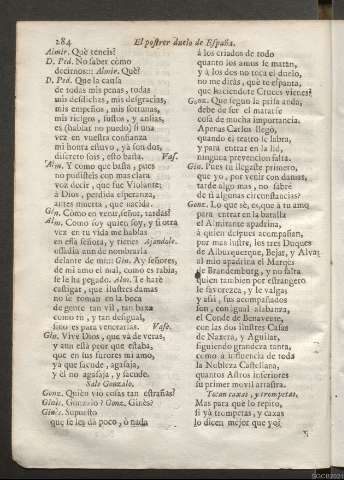 284 El postrer duelo de España.
Almir. Què teneis?
D. Ped. No saber como
decirnos::: Almir. Què?
D. Ped. Que la causa
de todas mis penas, todas
mis desdichas, mis desgracias,
mis empeños, sortunas,
mis riesgos, sustos, y ansias,
es (hablar no puedo) si una
vez en vuestra confianza
mi honra estuvo, yà son dos,
discreto sois, esto basta. Vas.
Alm. Y como que basta, pues
no pudisteis con mas clara
voz decir, que fue Violante:
à Dios, perdida esperanza,
antes muerta, que nacida.
Gin. Còmo en venir, señor, tardas?
Alm. Como soy quien soy, y si otra
vez en tu vida me hablas
en essa señora, y tienes Ajandole.
ossadia aun de nombrarla
delante de mi:: Gin. Ay señores,
de mi amo el mal, como es rabia,
se le ha pegado. Alm. Te harè
castigar, que ilustres damas
no se toman en la boca
de gente tan vil, tan baxa
como tu, y tan desigual,
sino es para venerarlas. Vase.
Gin. Vive Dios, que và de veras,
y aun allà peor que estaba,
que en sus furores mi amo,
ya que sacude, agasaja,
y èl no agasaja, y sacude.
Sale Gonzalo.
Gonz. Quien viò cosas tan estrañas?
Ginès. Gonzalo? Gonz. Ginès?
Ginès. Supuesto
que se les dà poco, ò nada
à los criados de todo
quanto los amos se matan,
y à los dos no toca el duelo,
no me diràs, què te espanta,
que haciendote Cruces vienes?
Gonz. Que segun la prisa anda,
debe de ser el matarse
cosa de mucha importancia.
Apenas Carlos llegò,
quando el teatro se labra,
y para entrar en la lid,
ninguna prevencion falta.
Gin. Pues tu llegaste primero,
que yo, por venir con damas,
tarde algo mas, no sabrè
de ti algunas circunstancias?
Gonz. Lo que sè, es, que à tu amo
para entrar en la batalla
el Almirante apadrina,
à quien despues acompañan,
por mas lustre, los tres Duques
de Alburquerque, Bejar, y Alva;
al mio apadrina el Marquès
de Brandemburg, y no falta
quien tambien por estrangero
le favorezca, y le valga;
y assi, sus acompañados
son, con igual alabanza,
el Conde de Benavente,
con las dos ilustres Casas
de Naxera, y Aguilar,
siguiendo grandeza tanta,
como à influencia de toda
la Nobleza Castellana,
quantos Astros inferiores
su primer movil arrastra.
Tocan caxas, y trompetas.
Mas para què lo repito,
si yà trompetas, y caxas
lo dicen mejor que yo?